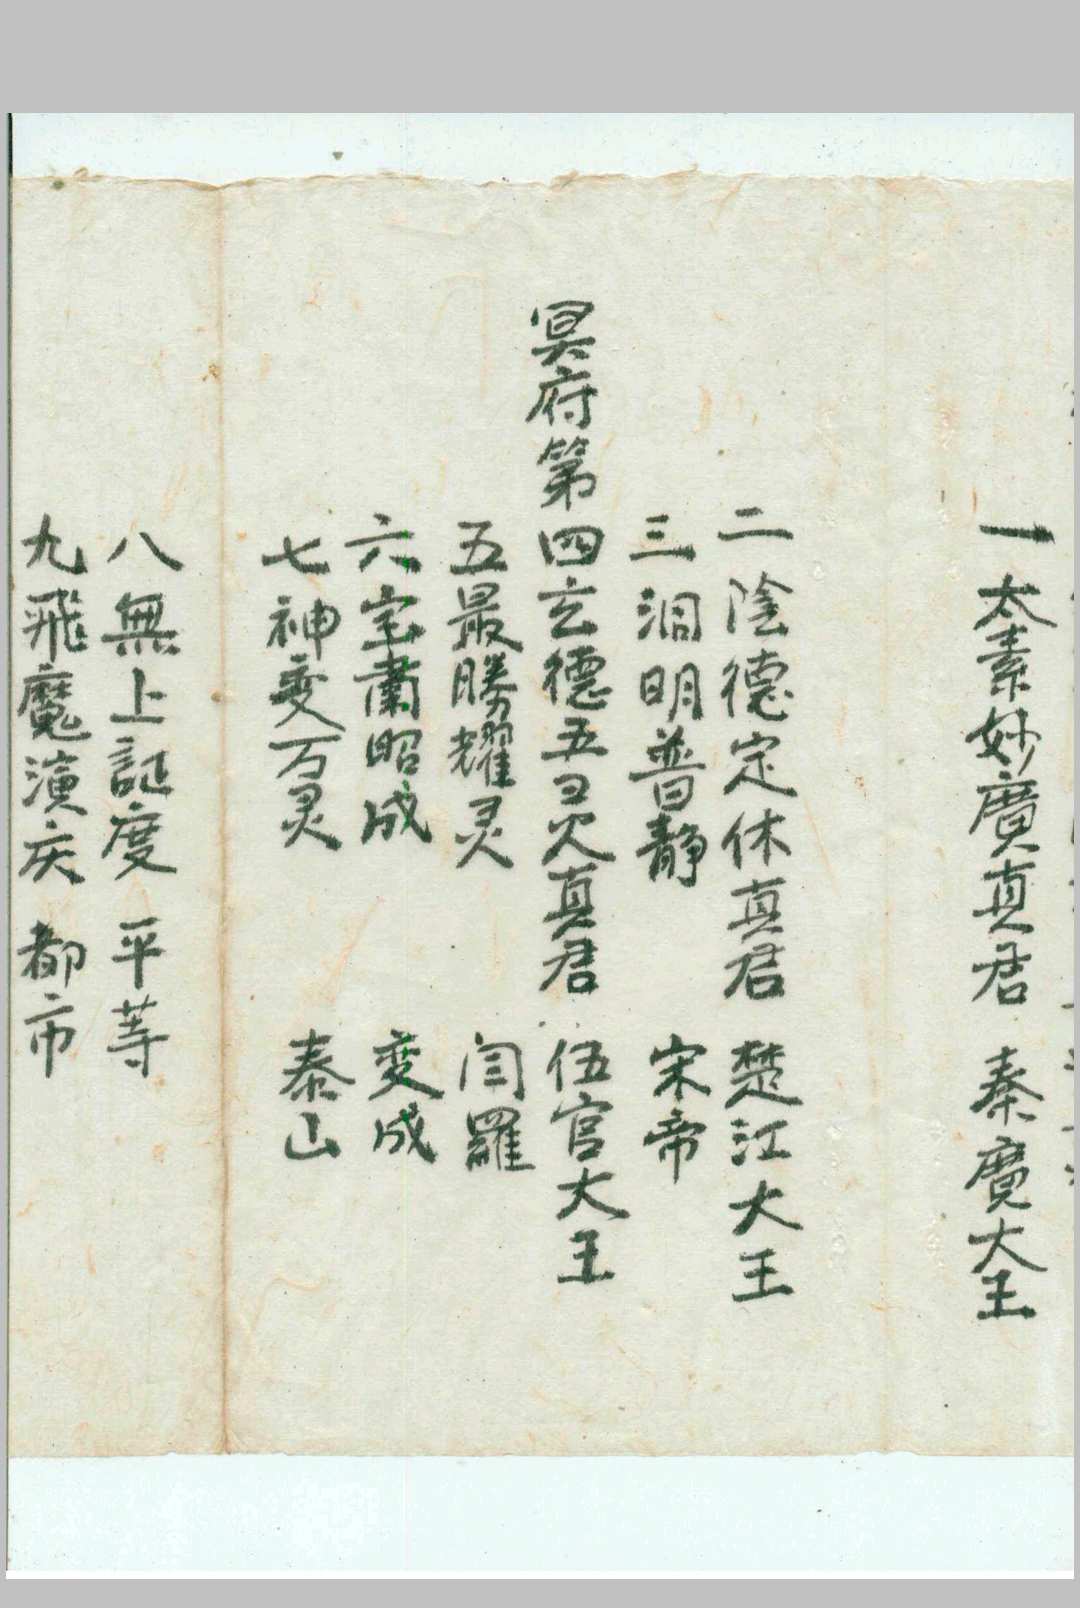 一太素妙廣真君 秦廣大王
二陰德定休真君 楚江大王
三洞明普静 宋帝
冥府第四玄德五灵真君 伍官大王
五最勝耀灵 閆羅
六宝肅昭成 变成
七神变万灵 泰山
八無上証度 平等
九飛魔演庆 都市